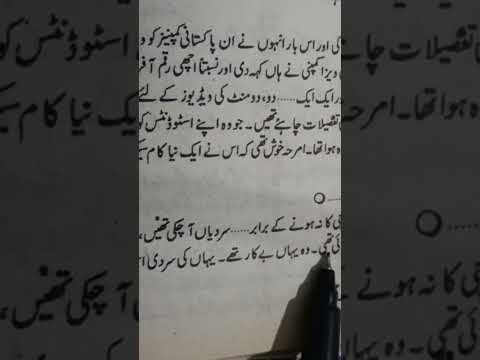 کی اور اس بار انہوں نے ان پاکستانی کمپنیز کو
ویزا کمپنی نے ہاں کہہ دی اور نسبتاً اچھی رقم آفر
ایک ایک......دو، دو منٹ کی ویڈیوز کے لئے
تفصیلات چاہئے تھیں۔ جو وہ اپنے اسٹوڈنٹس کو
ہوا تھا۔ امرحہ خوش تھی کہ اس نے ایک نیا کام
کا نہ ہونے کے برابر......سردیاں آ چکی تھیں،
تھی۔ وہ یہاں بے کار تھے۔ یہاں کی سردی